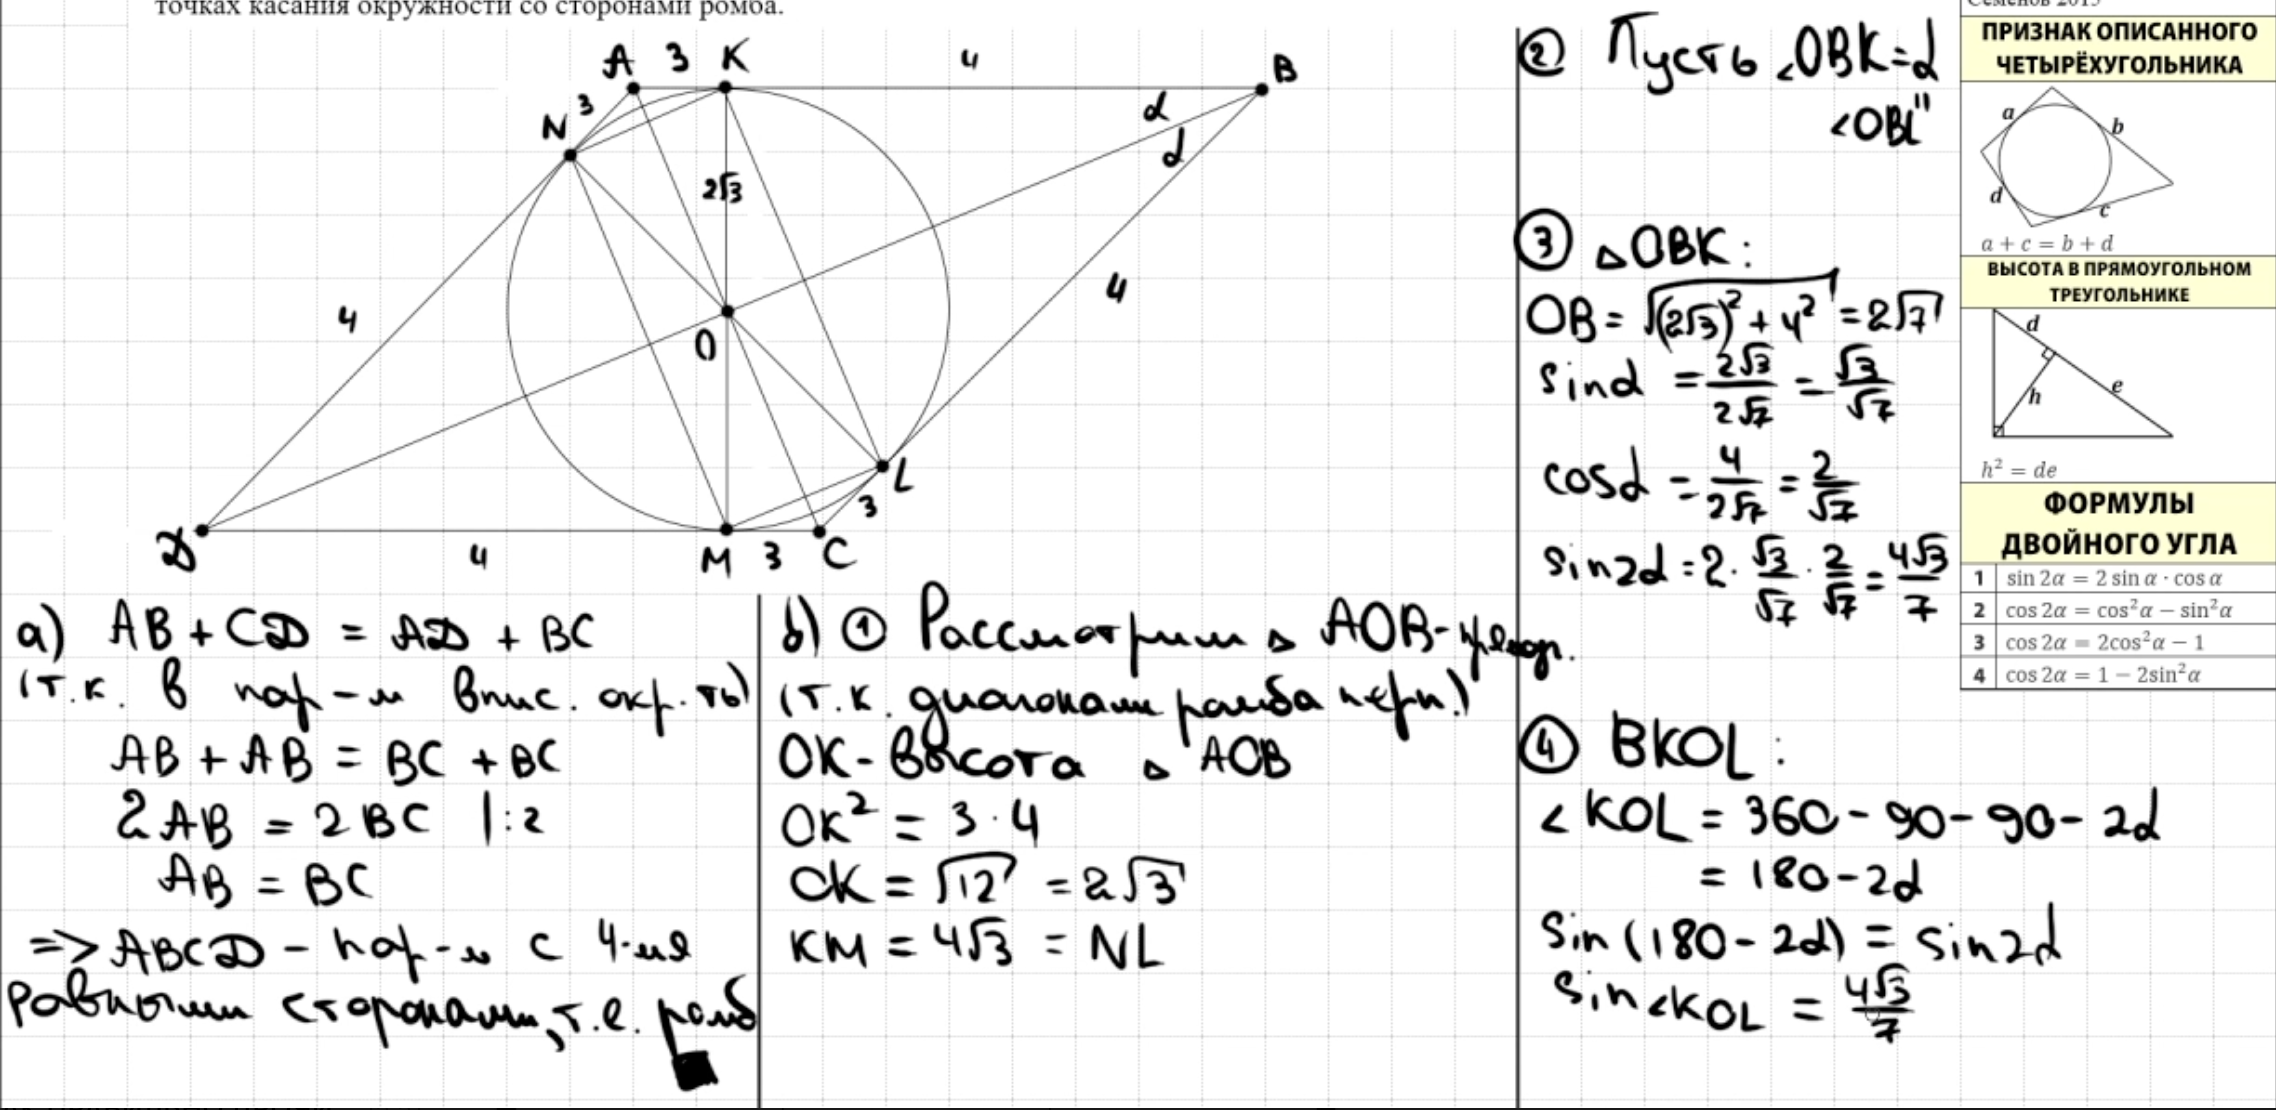 точках касания окружности со сторонами ромба.
A 3 K 4 B
3
N
α
α
2√3
4
O
4
L
3
D 4 M 3 C
а) AB + CD = AD + BC
(т.к. в пар-м впис. окр.-ть)
AB + AB = BC + BC
2AB = 2BC |:2
AB = BC
=> ABCD – пар-м с 4-мя
равными сторонами, т.е. ромб
б) ① Рассмотрим △ AOB-
(т.к. диагонали ромба перп.)
OK - высота △ AOB
OK² = 3·4
OK = √12 = 2√3
KM = 4√3 = NL
② Пусть ∠OBK = α
∠OBL "
③ △OBK:
OB = √((2√3)² + 4²) = 2√7
sin α = 2√3/2√7 = √3/√7
cos α = 4/2√7 = 2/√7
sin 2α = 2 · √3/√7 · 2/√7 = 4√3/7
④ BKOL:
∠KOL = 360 - 90 - 90 - 2α
= 180 - 2α
sin (180 - 2α) = sin 2α
sin ∠KOL = 4√3/7
Семенов 2015
ПРИЗНАК ОПИСАННОГО
ЧЕТЫРЁХУГОЛЬНИКА
a
b
d
c
a + c = b + d
ВЫСОТА В ПРЯМОУГОЛЬНОМ
ТРЕУГОЛЬНИКЕ
d
h
e
h² = de
ФОРМУЛЫ
ДВОЙНОГО УГЛА
1 sin 2α = 2 sin α · cos α
2 cos 2α = cos²α − sin²α
3 cos 2α = 2cos²α − 1
4 cos 2α = 1 − 2sin²α